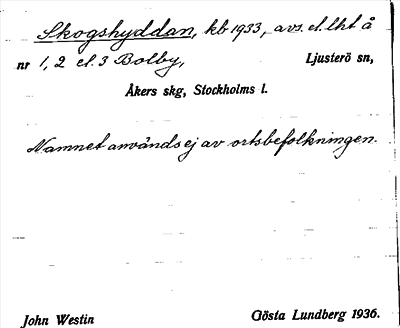 Skogshyddan, kb 1933, avs. el. lht å
nr 1, 2 el. 3 Bolby, Ljusterö sn,
Åkers skg, Stockholms l.
Namnet används ej av ortsbefolkningen.
John Westin Gösta Lundberg 1936.